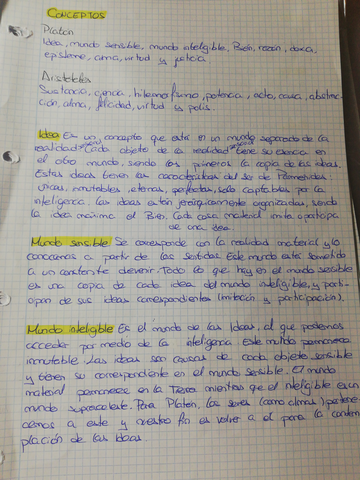 CONCEPTOS
Platón
Idea, mundo sensible, mundo inteligible, Bien, razón, doxa,
episteme, alma, virtud y justicia.
Aristóteles
Sustancia, ciencia, hilemorfismo, potencia, acto, causa, abstrac-
ción, alma, felicidad, virtud y polis.
Idea Es un concepto que está en un mundo separado de la
realidad. Cada objeto de la realidad tiene su esencia en
el otro mundo, siendo los primeros la copia de las ideas.
Estas ideas tienen las características del ser de Parménides
únicas, inmutables, eternas, perfectas, solo captables por la
inteligencia. Las ideas están jerárquicamente organizadas, siendo
la idea máxima el Bien. Cada cosa material imita o participa
de una idea.
Mundo sensible Se corresponde con la realidad material y lo
conocemos a partir de los sentidos. Este mundo está sometido
a un constante devenir. Todo lo que hay en el mundo sensible
es una copia de cada idea del mundo inteligible, y parti-
cipan de sus ideas correspondientes (imitación y participación).
Mundo inteligible Es el mundo de las Ideas, al que podemos
acceder por medio de la inteligencia. Este mundo permanece
inmutable. Las ideas son causas de cada objeto sensible
y tienen su correspondiente en el mundo sensible. El mundo
material permanece en la Tierra mientras que el inteligible es un
mundo supraceleste. Para Platón, los seres (como almas) pertene-
cemos a este y nuestro fin es volver a él para la contem-
plación de las ideas.